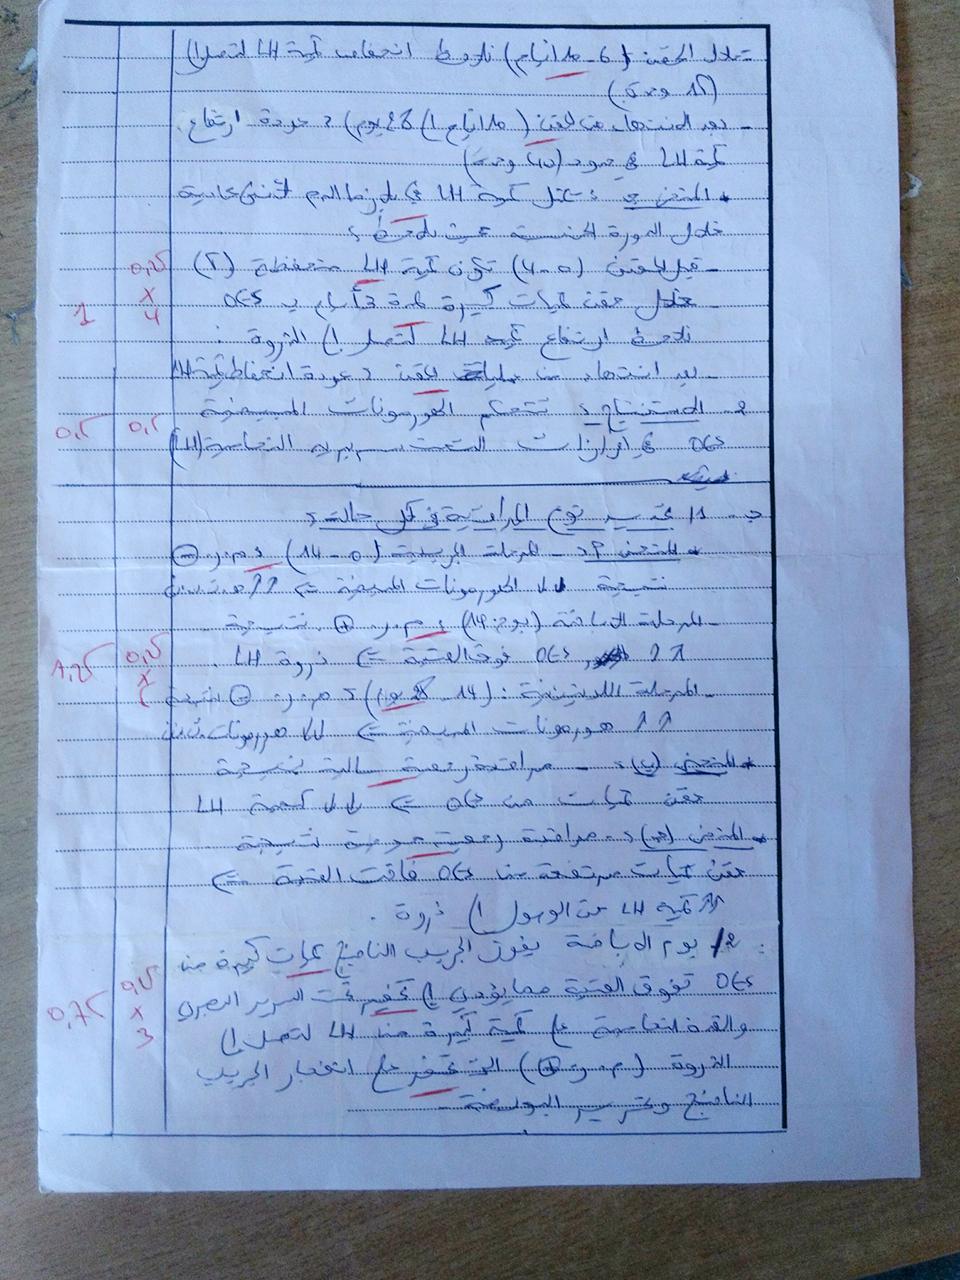 - خلال الحقن (6 - 10 أيام) نلاحظ انخفاض كمية LH لتصل إلى
(15 وحدة)
- بعد الانتهاء من الحقن (10 أيام إلى 26 يوم): عودة ارتفاع
كمية LH في حدود (40 وحدة)
* المنحنى ج: تمثل كمية LH في بلازما الدم لأنثى عادية
خلال الدورة الجنسية حيث نلاحظ:
- قبل الحقن (0 - 4) تكون كمية LH منخفضة
- خلال حقن كميات كبيرة لمدة 3 أيام بـ OES
نلاحظ ارتفاع كمية LH لتصل إلى الذروة.
- بعد انتهاء من عمليات الحقن: عودة انخفاض كمية LH
2- الاستنتاج: تتحكم الهورمونات المبيضية
OES في إفرازات التحت سريرية النخامية (LH)
0,25
x
4
1
0,5
0,5
ب- 1/ تحديد نوع المراقبة في كل حالة:
* المنحنى أ: - المرحلة الجريبية (0 - 14): م.ر ⊖
نتيجة ↓↓ الهورمونات المبيضية ⇐ ↑↑
- المرحلة الاباضة (يوم 14): م.ر ⊕ نتيجة
↑↑ OES فوق العتبة ⇐ ذروة LH.
- المرحلة اللوتيئينية: (14 - 28 يوم): م.ر ⊖ نتيجة
↑↑ هورمونات المبيضية ⇐ ↓↓ هورمونات
* المنحنى (ب): - مراقبة رجعية سالبة نتيجة
حقن كميات من OES ⇐ ↓↓ كمية LH
* المنحنى (ج): - مراقبة رجعية موجبة نتيجة
حقن كميات مرتفعة من OES فاقت العتبة ⇐
↑↑ كمية LH حتى الوصول إلى ذروة.
0,25
x
1,25
2/ يوم الاباضة يفرز الجريب الناضج كميات كبيرة من
OES تفوق العتبة مما يؤدي إلى تحفيز تحت السرير البصري
والغدة النخامية على كمية كبيرة من LH لتصل إلى
الذروة (م.ر ⊕) التي تحفز على انفجار الجريب
الناضج وتحرير البويضة.
x
3
0,75